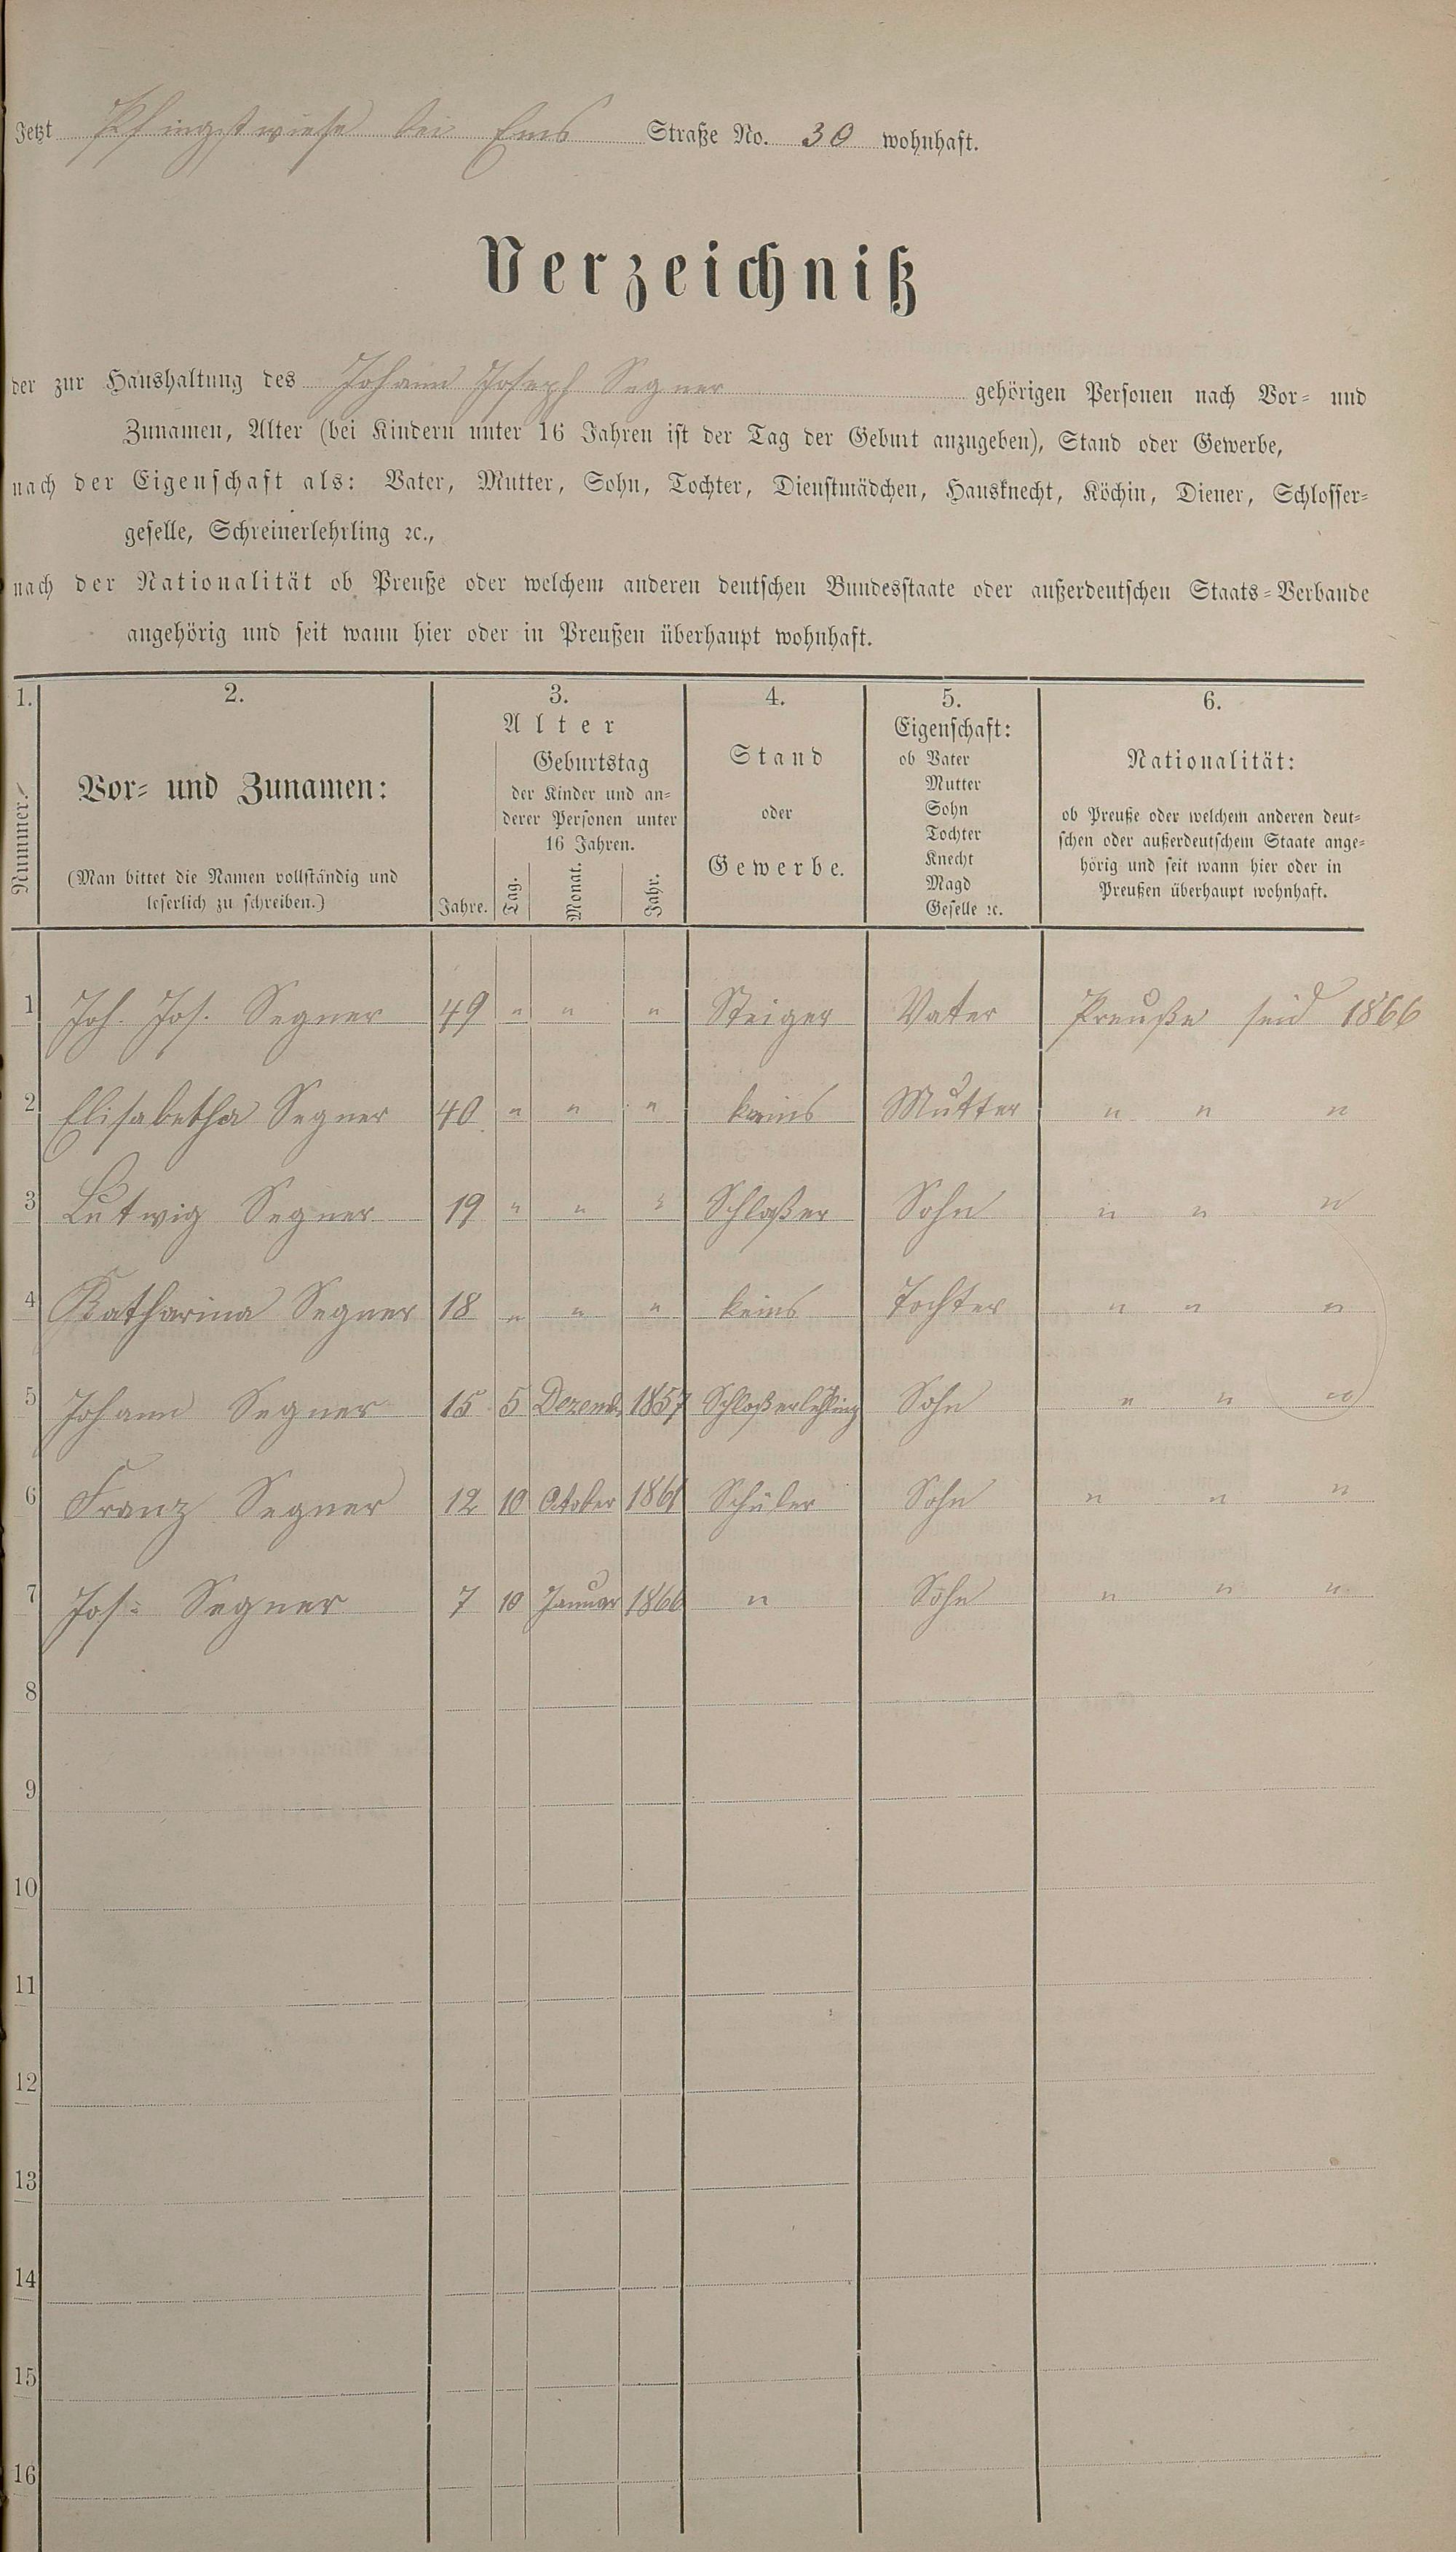 Jetzt Pfingstwiese bei Ems Straße No. 30 wohnhaft.
Verzeichniß
der zur Haushaltung des Johann Joseph Segner gehörigen Personen nach Vor- und
Zunamen, Alter (bei Kindern unter 16 Jahren ist der Tag der Geburt anzugeben), Stand oder Gewerbe,
nach der Eigenschaft als: Vater, Mutter, Sohn, Tochter, Dienstmädchen, Hausknecht, Köchin, Diener, Schlosser-
geselle, Schreinerlehrling ꝛc.,
nach der Nationalität ob Preuße oder welchem anderen deutschen Bundesstaate oder außerdeutschen Staats-Verbande
angehörig und seit wann hier oder in Preußen überhaupt wohnhaft.
1. 2. 3. 4. 5. 6.
Nummer.
Vor- und Zunamen:
(Man bittet die Namen vollständig und
leserlich zu schreiben.)
Alter
Jahre.
Geburtstag
der Kinder und an-
derer Personen unter
16 Jahren.
Tag. Monat. Jahr.
Stand
oder
Gewerbe.
Eigenschaft:
ob Vater
Mutter
Sohn
Tochter
Knecht
Magd
Geselle ꝛc.
Nationalität:
ob Preuße oder welchem anderen deut-
schen oder außerdeutschem Staate ange-
hörig und seit wann hier oder in
Preußen überhaupt wohnhaft.
1 Joh. Jos. Segner 49 " " " Steiger Vater Preuße seid 1866
2 Elisabetha Segner 40 " " " keins Mutter " " "
3 Lutwig Segner 19 " " " Schloßer Sohn " " "
4 Katharina Segner 18 " " " keins Tochter " " "
5 Johann Segner 15 5 Dezemb. 1857 Schloßerlehling Sohn " " "
6 Franz Segner 12 10 October 1861 Schüler Sohn " " "
7 Jos: Segner 7 10 Januar 1866 " Sohn " " "
8
9
10
11
12
13
14
15
16